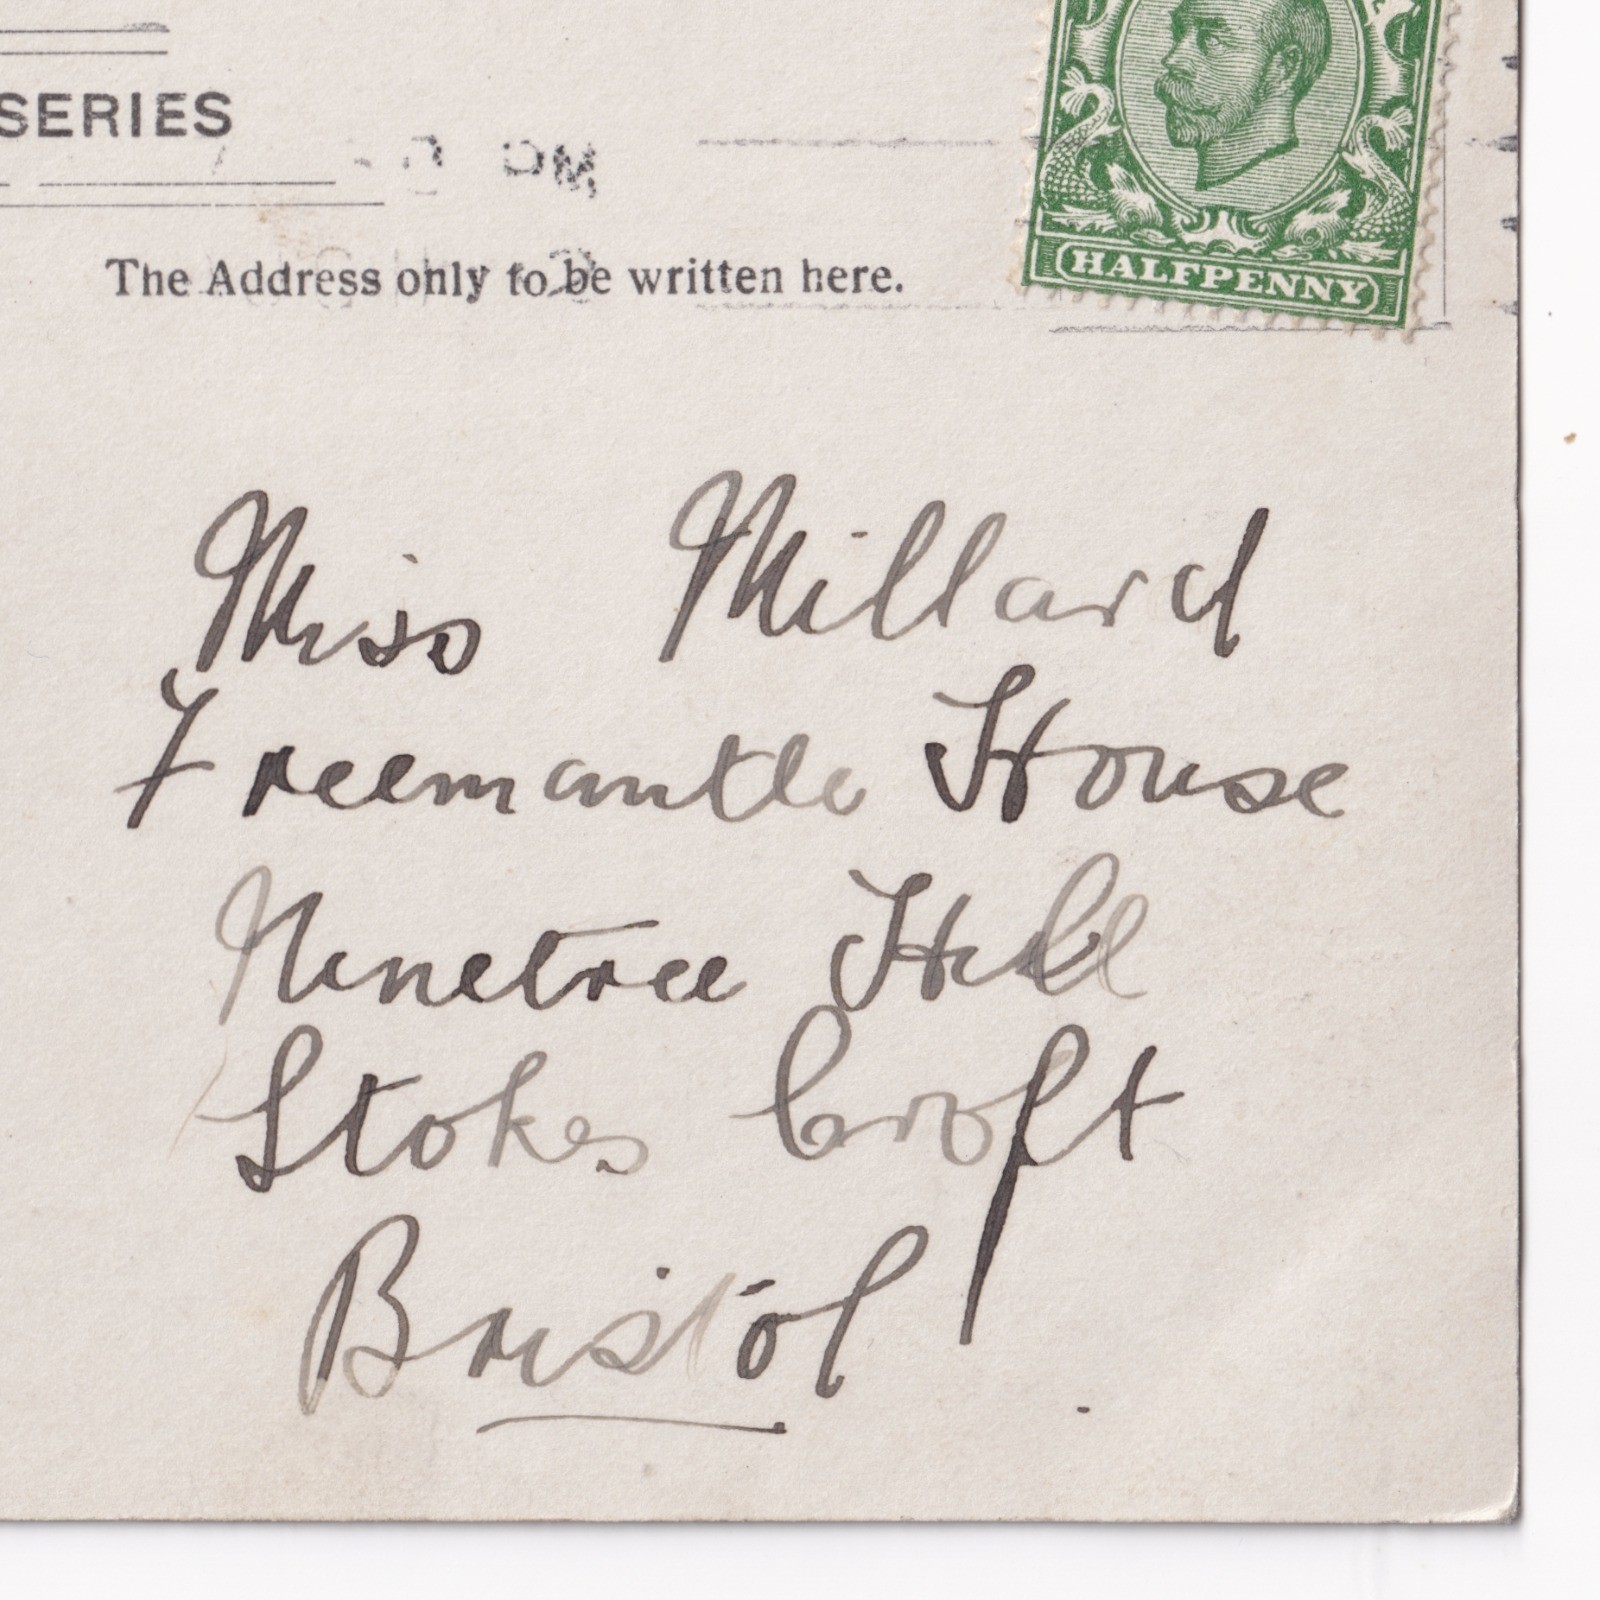 SERIES
The Address only to be written here.
HALFPENNY
Miss Millard
Freemantle House
Ninetree Hill
Stokes Croft
Bristol